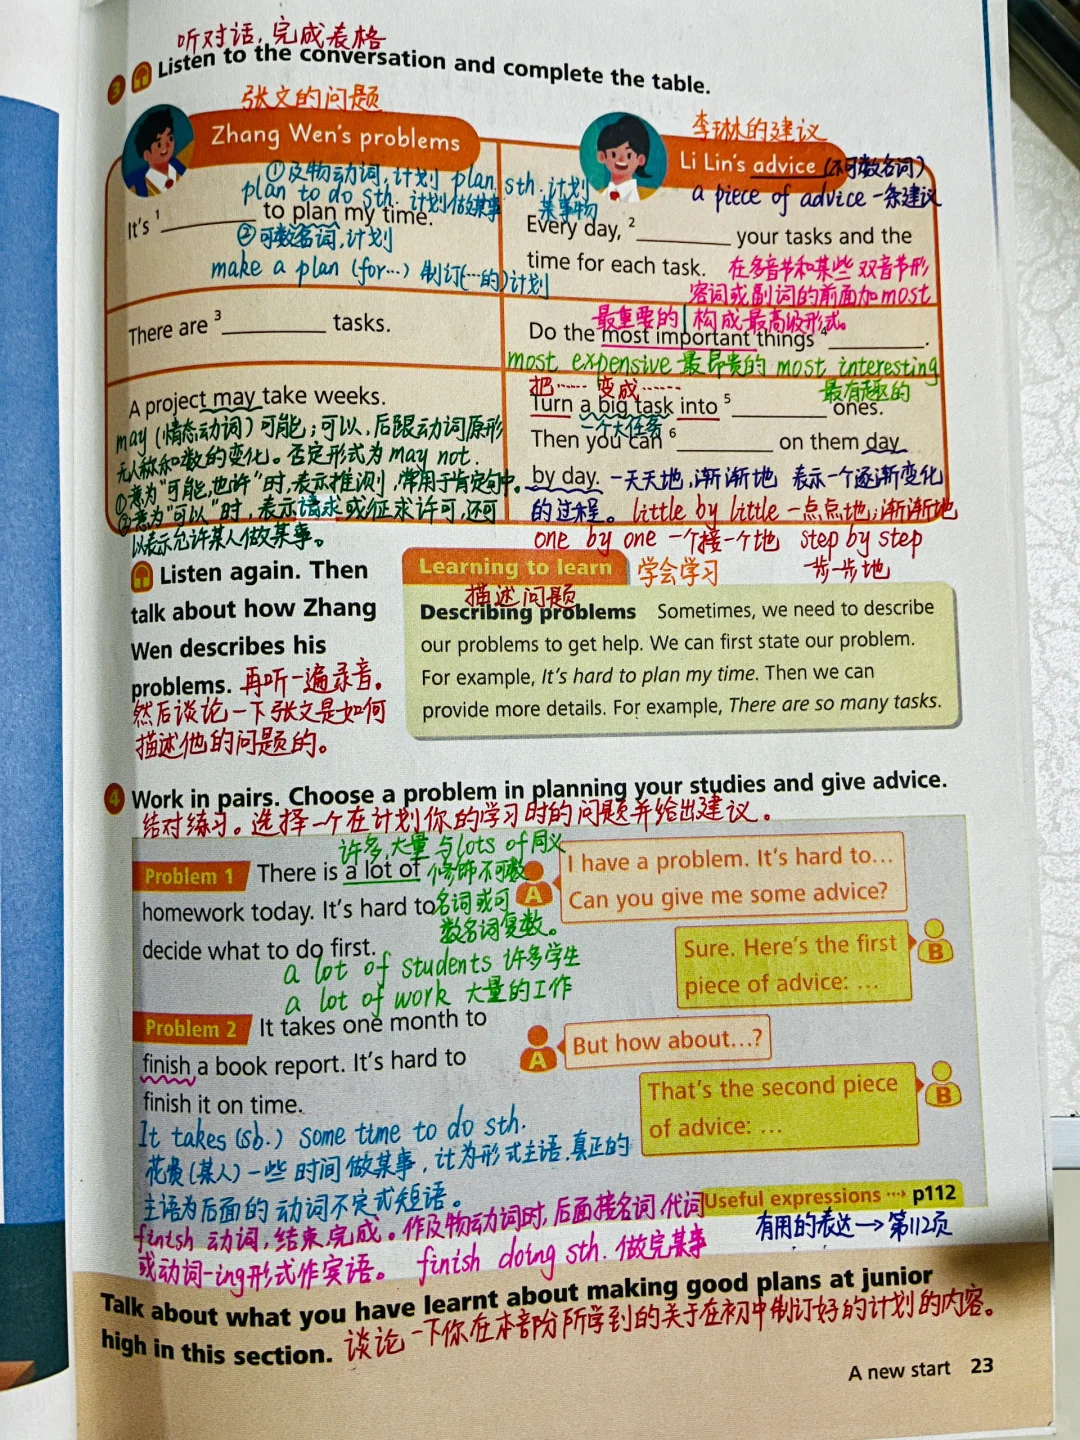 听对话,完成表格
3 Listen to the conversation and complete the table.
张文的问题
Zhang Wen's problems
①及物动词,计划 plan sth.计划某事物
plan to do sth. 计划做某事
It's 1 ________ to plan my time.
②可数名词,计划
make a plan (for…) 制订(…的)计划
李琳的建议
Li Lin's advice (不可数名词)
a piece of advice 一条建议
Every day, 2 ________ your tasks and the
time for each task. 在多音节和某些双音节形
容词或副词的前面加most
构成最高级形式。
There are 3 ________ tasks.
最重要的
Do the most important things 4 ________.
most expensive 最昂贵的 most interesting
最有趣的
A project may take weeks.
may (情态动词) 可能;可以,后跟动词原形
无人称和数的变化。否定形式为may not.
①意为"可能,也许"时,表示推测,常用于肯定句中。
②意为"可以"时,表示请求或征求许可,还可
以表示允许某人做某事。
把…… 变成……
Turn a big task into 5 ________ ones.
一个大任务
Then you can 6 ________ on them day
by day. 一天天地,渐渐地 表示一个逐渐变化
的过程。 little by little 一点点地;渐渐地
one by one 一个接一个地 step by step
一步一步地
Listen again. Then
talk about how Zhang
Wen describes his
problems. 再听一遍录音。
然后谈论一下张文是如何
描述他的问题的。
Learning to learn 学会学习
描述问题
Describing problems Sometimes, we need to describe
our problems to get help. We can first state our problem.
For example, It's hard to plan my time. Then we can
provide more details. For example, There are so many tasks.
4 Work in pairs. Choose a problem in planning your studies and give advice.
结对练习。选择一个在计划你的学习时的问题并给出建议。
许多,大量 与lots of同义
Problem 1 There is a lot of 修饰不可数
homework today. It's hard to 名词或可
decide what to do first. 数名词复数。
a lot of students 许多学生
a lot of work 大量的工作
A I have a problem. It's hard to…
Can you give me some advice?
Sure. Here's the first B
piece of advice: …
Problem 2 It takes one month to
finish a book report. It's hard to
finish it on time.
A But how about…?
That's the second piece B
of advice: …
It takes (sb.) some time to do sth.
花费(某人)一些时间做某事,it为形式主语,真正的
主语为后面的动词不定式短语。
Useful expressions ··› p112
有用的表达→第112页
finish 动词,结束,完成。作及物动词时,后面接名词,代词
或动词-ing形式作宾语。 finish doing sth. 做完某事
Talk about what you have learnt about making good plans at junior
high in this section. 谈论一下你在本部分所学到的关于在初中制订好的计划的内容。
A new start 23